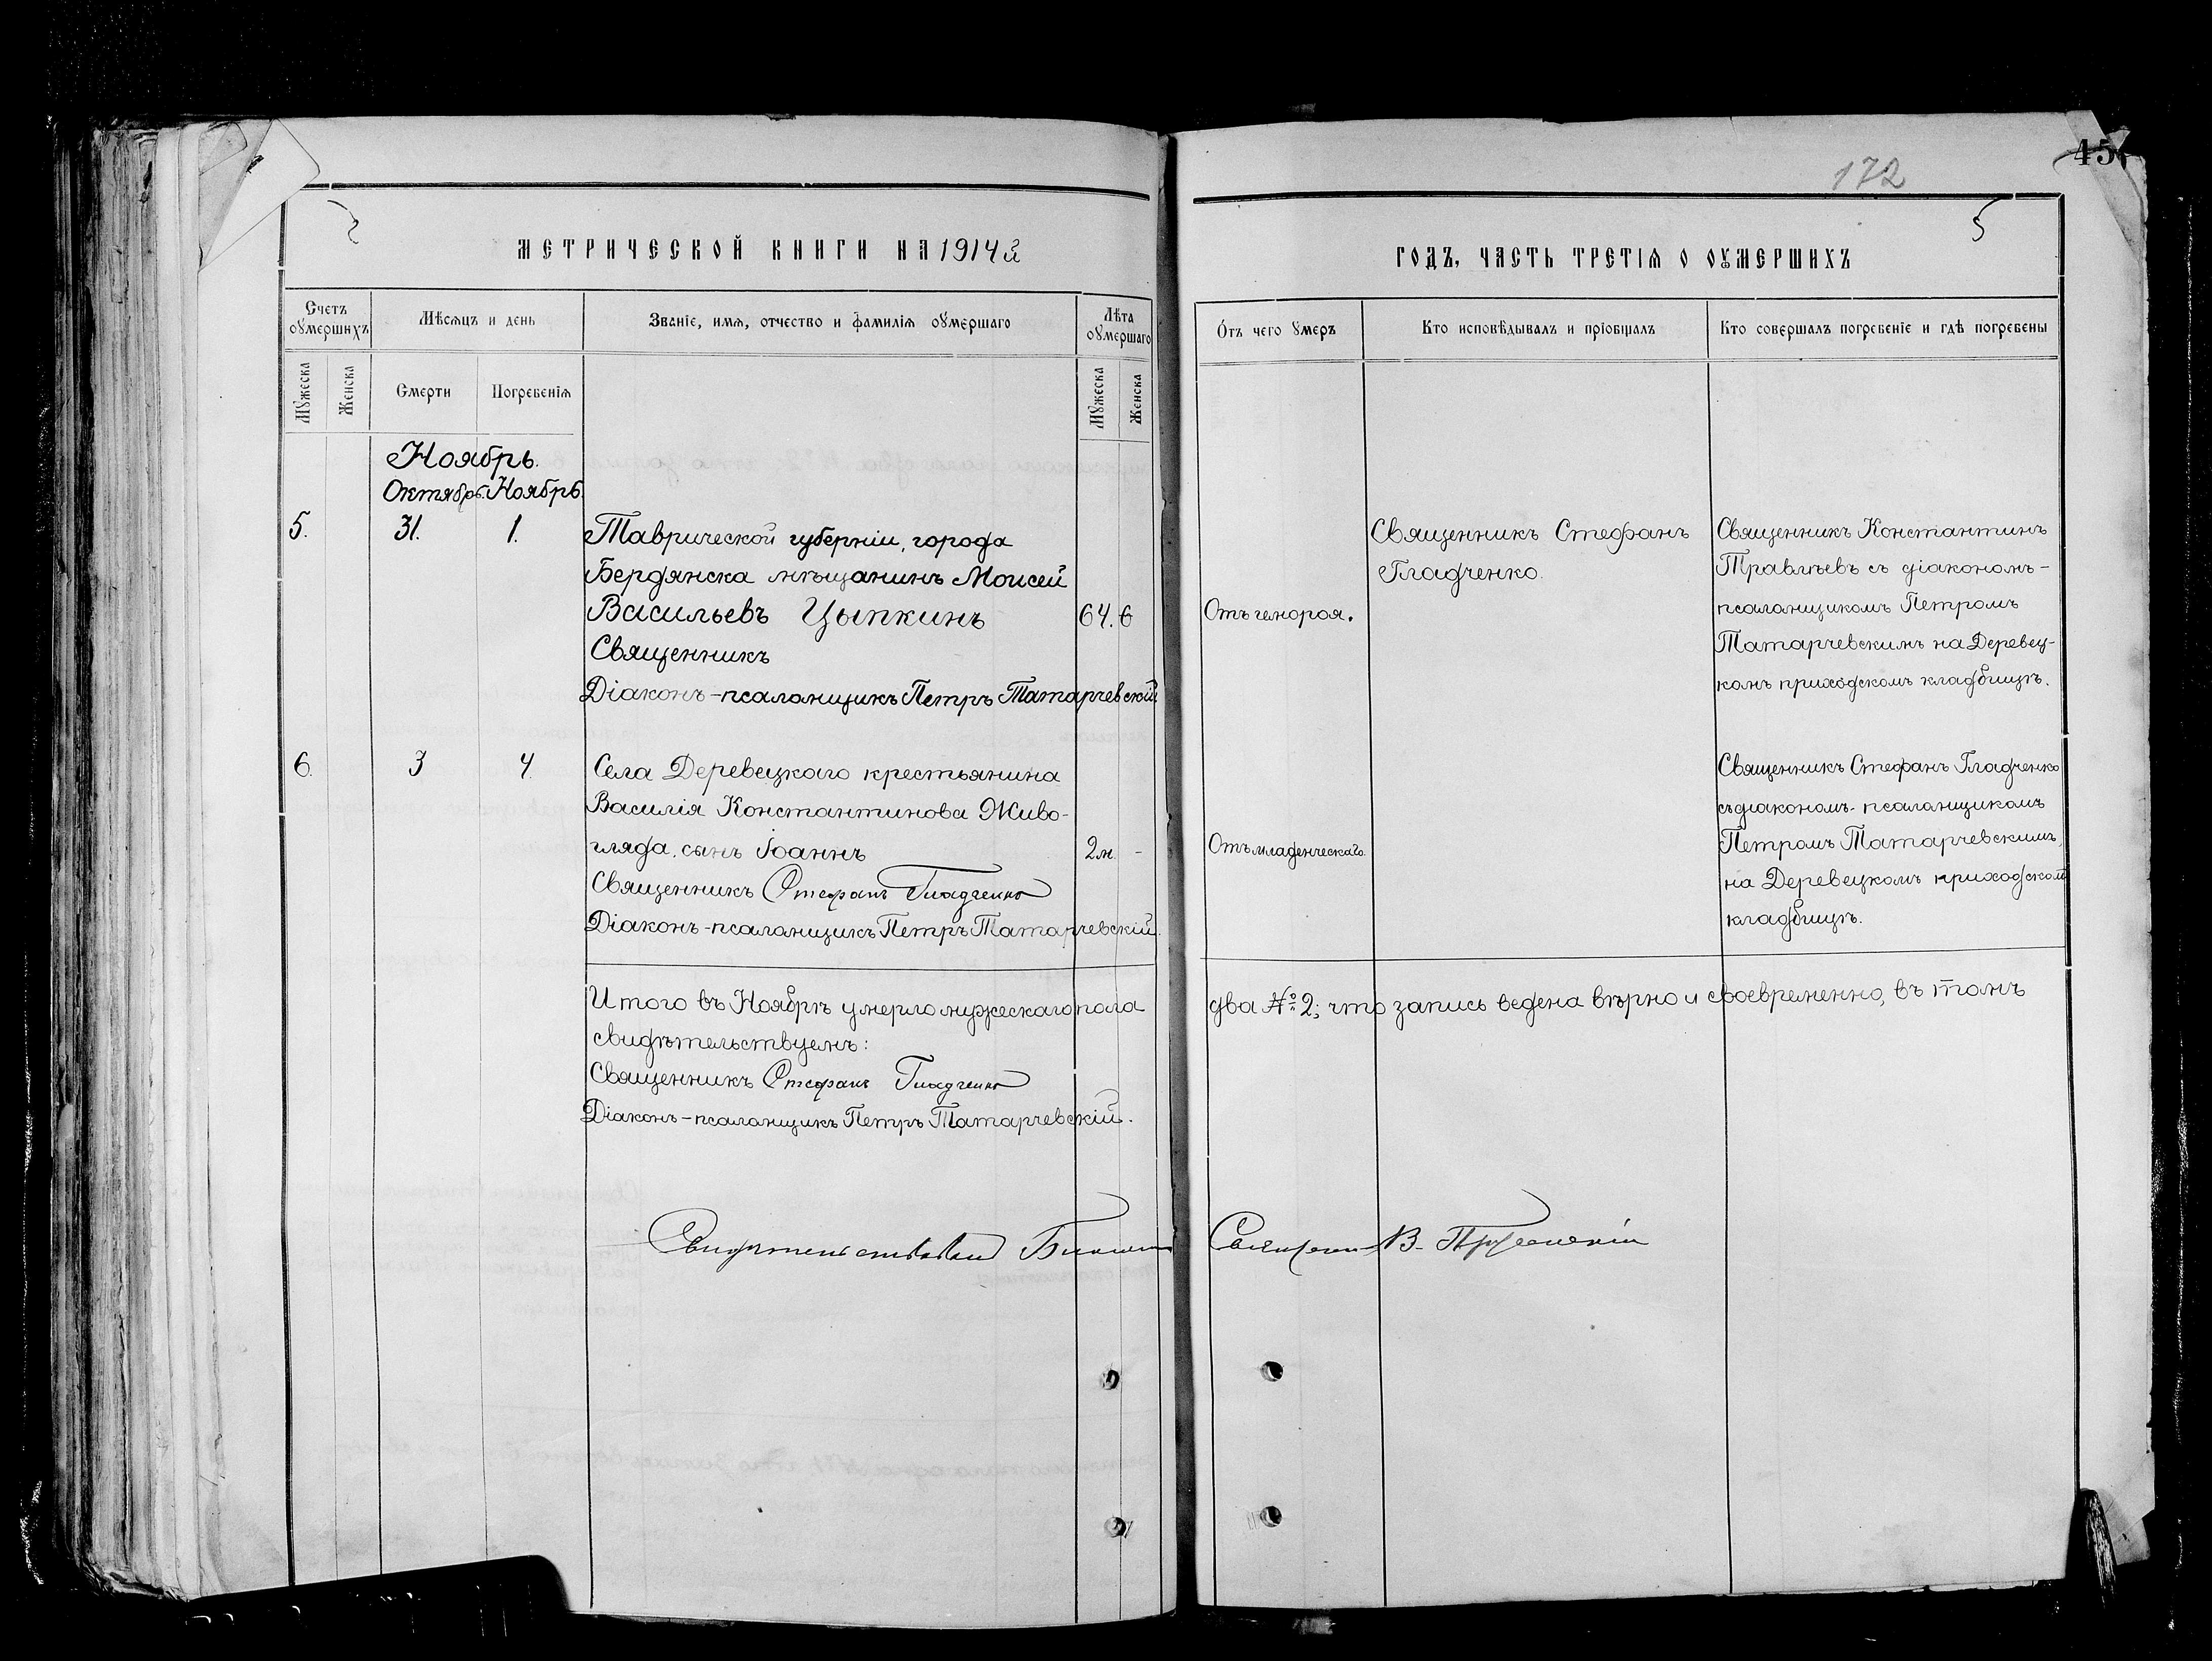 172
45
5
МЕТРИЧЕСКОЙ КНИГИ НА 1914й
ГОДЪ, ЧАСТЬ ТРЕТІѦ О ОУМЕРШИХЪ
Счетъ оумершихъ
Мѣсѧцъ и день
Званіе, имѧ, отчество и фамиліѧ оумершаго
Лѣта оумершаго
Отъ чего умеръ
Кто исповѣдывалъ и пріобщалъ
Кто совершалъ погребеніе и гдѣ погребены
Мужеска
Женска
Смерти
Погребеніѧ
Мужеска
Женска
Ноябрь.
Октябрь. Ноябрь
5.
31.
1.
Таврической губерніи, города
Бердянска мѣщанинъ Моисей
Васильевъ Цыпкинъ
Священникъ
Діаконъ-псаломщикъ Петръ Татарчевскій.
64.
Отъ гемороя.
Священникъ Стефанъ
Гладченко.
Священникъ Константинъ
Травлѣевъ съ діакономъ-
псаломщикомъ Петромъ
Татарчевскимъ на Деревец-
комъ приходскомъ кладбищѣ.
6.
3
4.
Села Деревецкаго крестьянина
Василія Константинова Живо-
гляда, сынъ Іоаннъ
Священникъ Стефанъ Гладченко
Діаконъ-псаломщикъ Петръ Татарчевскій.
2м. -
Отъ младенческаго.
Священникъ Стефанъ Гладченко
съ діакономъ-псаломщикомъ
Петромъ Татарчевскимъ,
на Деревецкомъ приходском
кладбищѣ.
Итого въ Ноябрѣ умерло мужескаго пола два №2; что запись ведена вѣрно и своевременно, въ томъ
свидѣтельствуемъ:
Священникъ Стефанъ Гладченко
Діаконъ-псаломщикъ Петръ Татарчевскій.
Свидѣтельствовалъ Священникъ В.